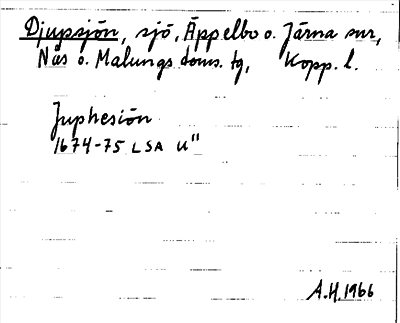 Djupsjön, sjö, Äppelbo o. Järna snr,
Nås o. Malungs doms. tg, Kopp. l.
Juphesiön
1674-75 LSA U"
A.H. 1966